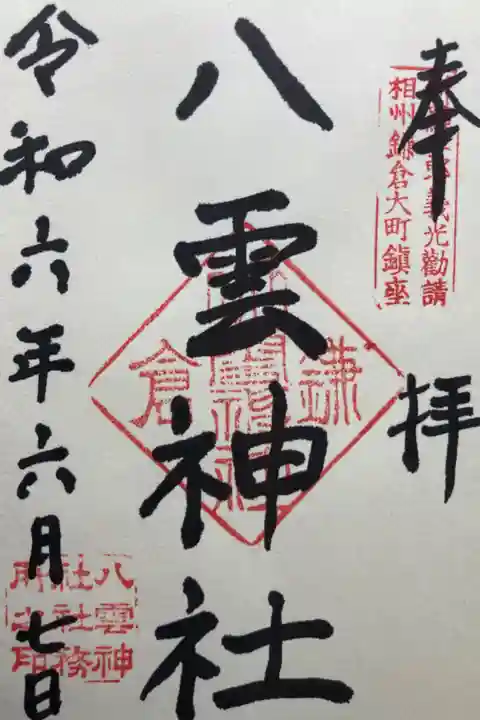 奉拝
義光勸請
相州鎌倉大町鎮座
八雲神社
鎌倉
八雲神社
令和六年六月七日
八雲神
社社務
所之印